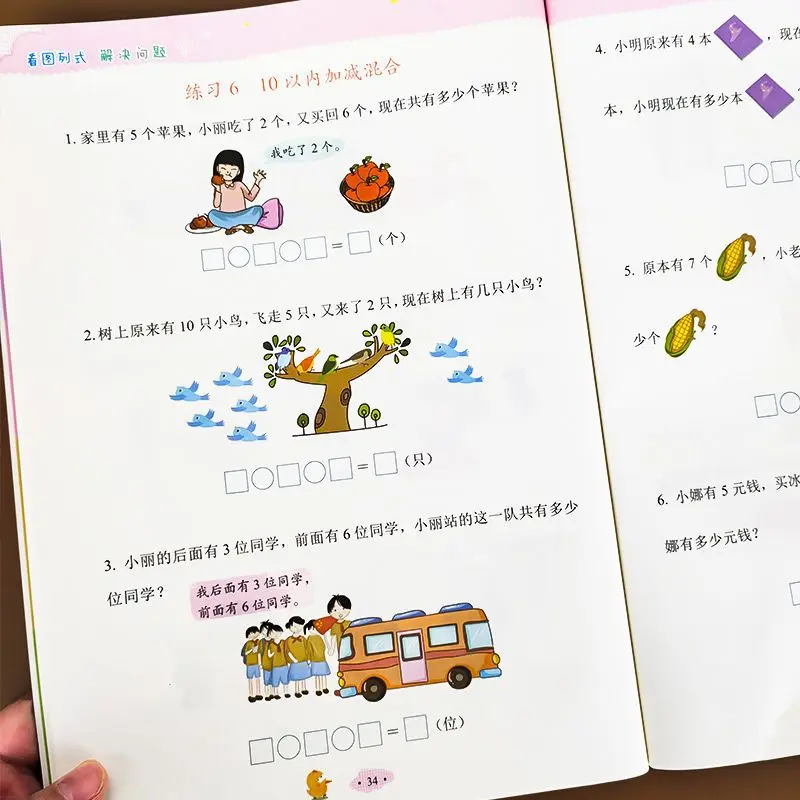 看图列式 解决问题
练习6 10以内加减混合
1.家里有5个苹果，小丽吃了2个，又买回6个，现在共有多少个苹果？
我吃了2个。
=（个）
2.树上原来有10只小鸟，飞走5只，又来了2只，现在树上有几只小鸟？
=（只）
3. 小丽的后面有3位同学，前面有6位同学，小丽站的这一队共有多少
位同学？
我后面有3位同学，
前面有6位同学。
=（位）
·34·
4. 小明原来有4本，现在
本，小明现在有多少本
5. 原本有7个，小老
少个？
6. 小娜有5元钱，买冰
娜有多少元钱？